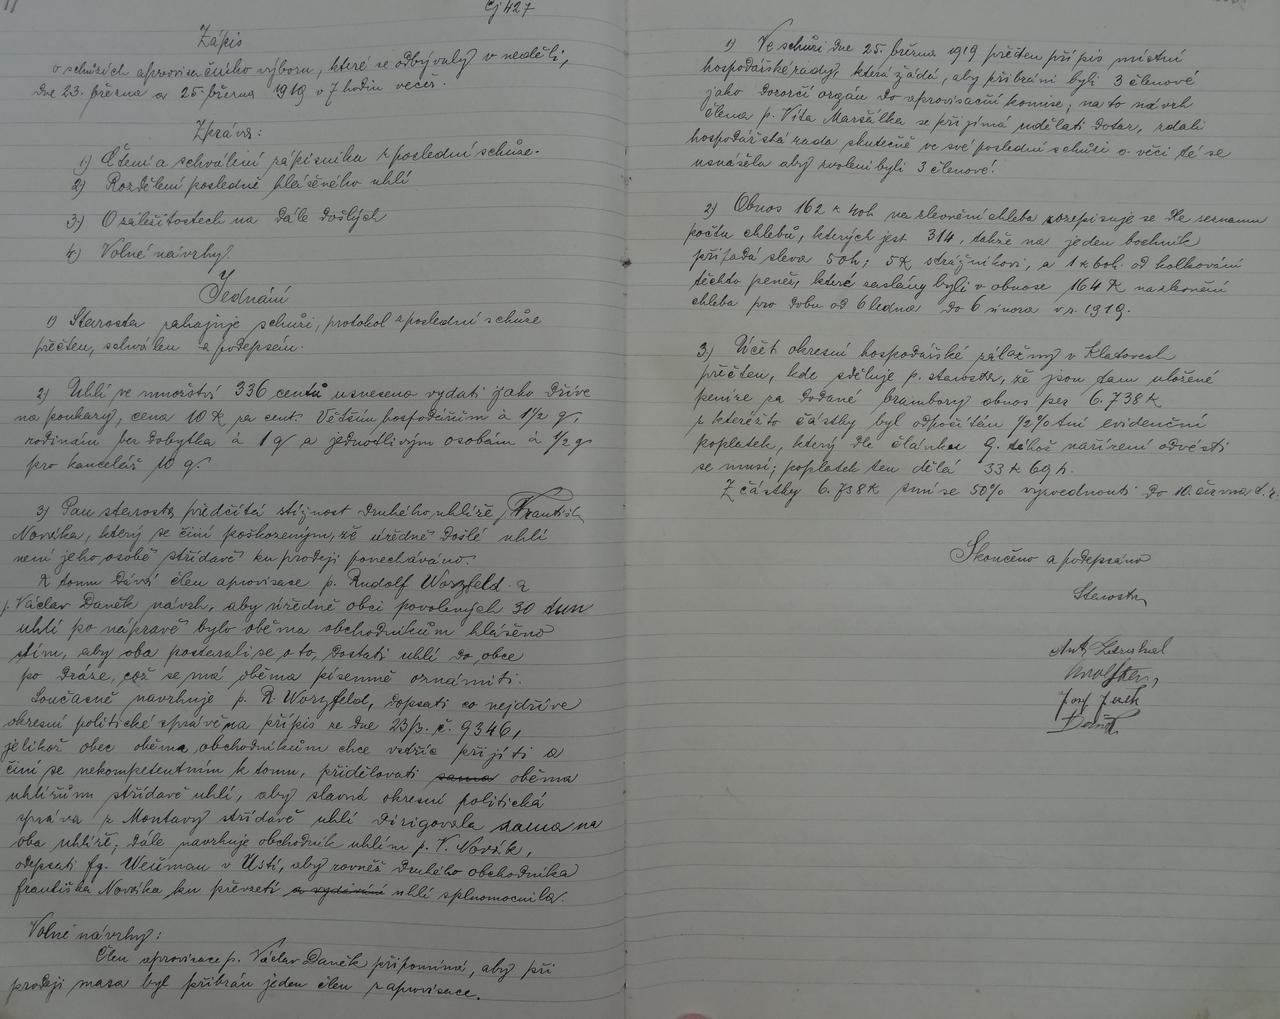 Čj 427
Zápis
o schůzích aprovisačního výboru, které se odbývaly v neděli,
dne 23. března a 25. března 1919 v 7 hodin večer.
Zpráva:
1) Čtení a schválení zápisníku z poslední schůze.
2) Rozdělení posledně hlášeného uhlí
3.) O záležitostech na dále došlých
4.) Volné návrhy.
Jednání
1) Starosta zahajuje schůzi, protokol z poslední schůze
přečten, schválen a podepsán.
2) Uhlí ve množství 336 centů usneseno vydati jako dříve
na poukazy, cena 10 K za cent. Větším hospodářům à 1 1/2 q,
rodinám bez dobytka à 1 q a jednotlivým osobám à 1/2 q
pro kancelář 10 q.
3) Pan starosta předčítá stížnost druhého uhlíře František
Nováka, který se činí poškozeným, že úředně došlé uhlí
není jeho osobě střídavě ku prodeji ponecháváno.
K tomu dává člen aprovisace p. Rudolf Worzfeld a
p. Václav Daněk návrh, aby úředně obci povolených 30 tun
uhlí po nápravě bylo oběma obchodníkům hlášeno
s tím, aby oba postarali se o to, dostati uhlí do obce
po dráze, což se má oběma písemně oznámiti.
Současně navrhuje p. R. Worzfeld, dopsati co nejdříve
okresní politické správě na přípis ze dne 23/3. č. 9346,
jelikož obec oběma obchodníkům chce vstříc přijíti a
činí se nekompetentním k tomu, přidělovati sama oběma
uhlířům střídavě uhlí, aby slavná okresní politická
správa z Montavy střídavě uhlí dirigovala sama na
oba uhlíře; dále navrhuje obchodník uhlím p. V. Novák,
odepsati fy. Weiman v Ústí, aby rovněž druhého obchodníka
františka Nováka ku převzetí a vydávání uhlí splnomocnila.
Volné návrhy:
Člen aprovisace p. Václav Daněk připomíná, aby při
prodeji masa byl přibrán jeden člen z aprovisace.
1) Ve schůzi dne 25. března 1919 přečten přípis místní
hospodářské rady, která žádá, aby přibráni byli 3 členové
jako dozorčí orgán do aprovisační komise; na to návrh
člena p. Víta Maršálka se přijímá udělati dotaz, zdali
hospodářská rada skutečně ve své poslední schůzi o věci té se
usnášela aby zvoleni byli 3 členové!
2) Obnos 162 K 40h na zlevnění chleba rozepisuje se dle seznamu
počtu chlebů, kterých jest 314, takže na jeden bochník
připadá sleva 50h; 5 K strážníkovi, a 1 K 60h. od kolkování
těchto peněz, které zaslány byli v obnose 164 K na zlevnění
chleba pro dobu od 6 ledna do 6 února v r. 1919.
3.) Účet okresní hospodářské záložny v Klatovech
přečten, kde sděluje p. starosta, že jsou tam uložené
peníze za dodané brambory obnos per 6.738 K
z kteréžto částky byl odpočítán 1/2 %tní evidenční
poplatek, který dle článku 9. téhož nařízení odvésti
se musí; poplatek ten dělá 33 K 69 h.
Z částky 6.738 K smí se 50% vyzvednouti do 10. června t. r.
Skončeno a podepsáno
Starosta
Ant.
Josef